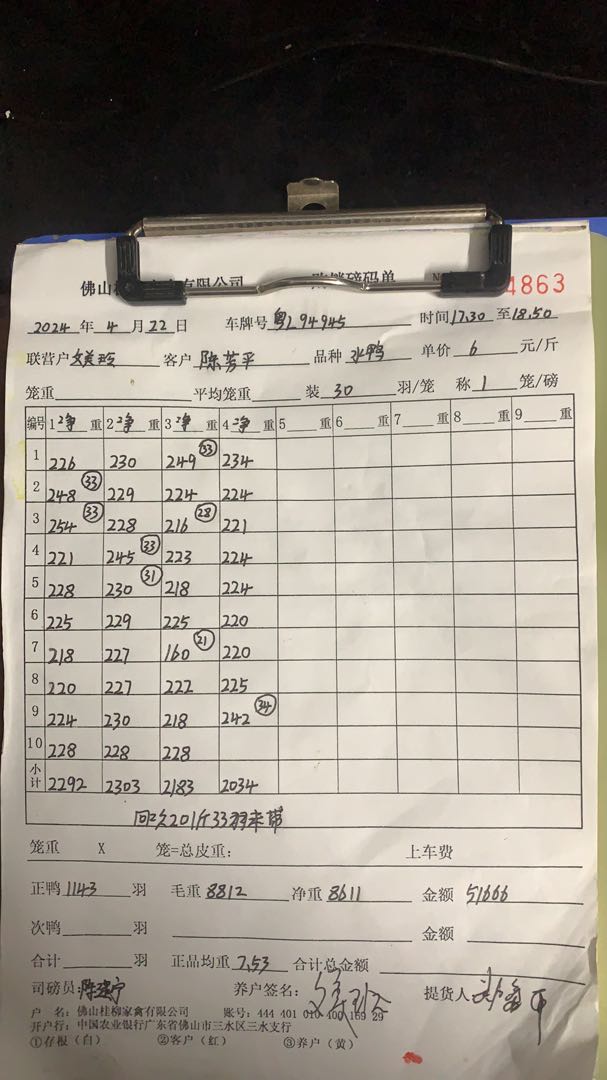 佛山桂 家禽有限公司 购销磅码单 N 4863
2024 年 4 月 22 日 车牌号 粤L94945 时间 17.30 至 18.50
联营户 客户 陈芳平 品种 水鸭 单价 6 元/斤
笼重 平均笼重 装 30 羽/笼 称 1 笼/磅
编号 1 净 重 2 净 重 3 净 重 4 净 重 5 重 6 重 7 重 8 重 9 重
1 226 230 249 33 234
2 248 33 229 224 224
3 254 33 228 216 28 221
4 221 245 33 223 224
5 228 230 31 218 224
6 225 229 225 220
7 218 227 160 21 220
8 220 227 222 225
9 224 230 218 242 34
10 228 228 228
小计 2292 2303 2183 2034
回 201斤33羽未带
笼重 X 笼=总皮重: 上车费
正鸭 1143 羽 毛重 8812 净重 8611 金额 51666
次鸭 羽 金额
合计 羽 正品均重 7.53 合计总金额
司磅员: 养户签名: 提货人
户 名: 佛山桂柳家禽有限公司 账号: 444 401 010 400 169 29
开户行: 中国农业银行广东省佛山市三水区三水支行
①存根(白) ②客户(红) ③养户(黄)